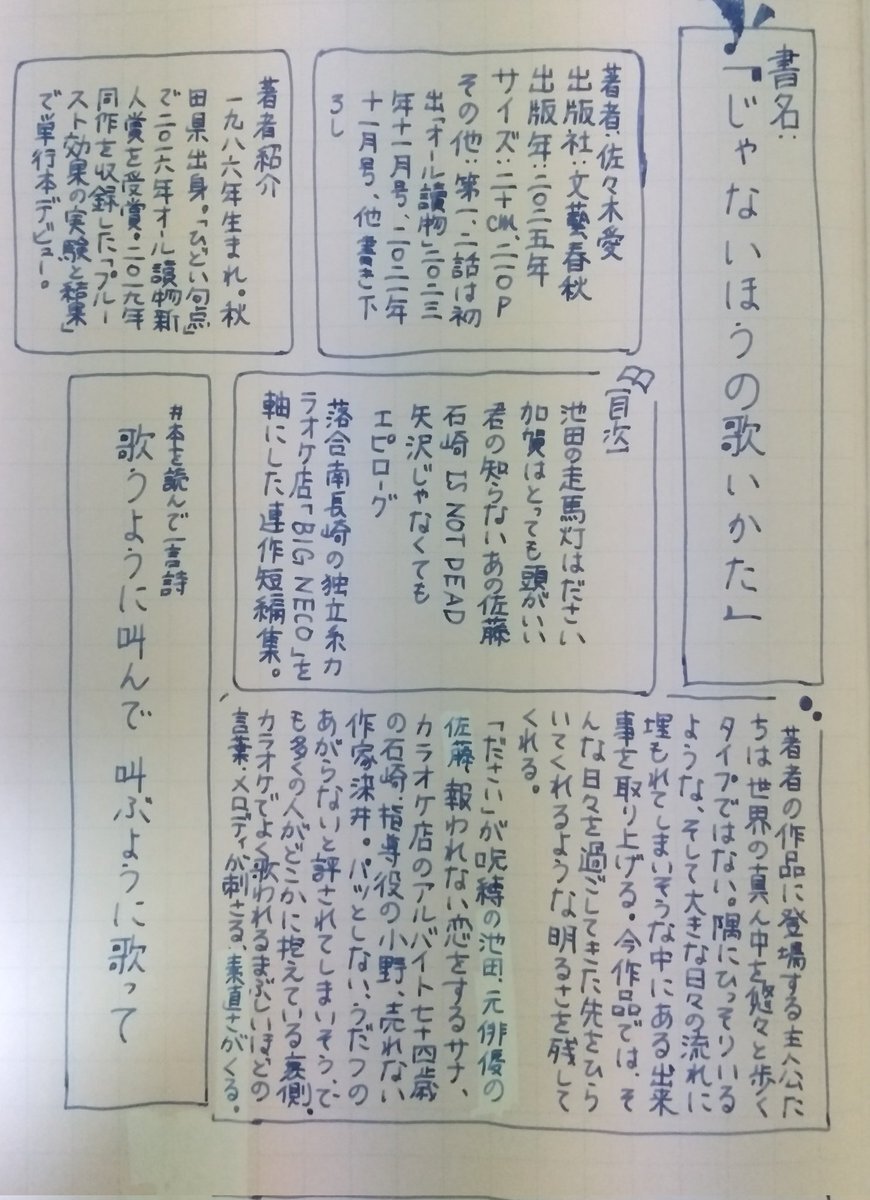 書名:
『じゃないほうの歌いかた』
著者:佐々木愛
出版社:文藝春秋
出版年:二〇二五年
サイズ:二十cm、二一〇P
その他:第一、二話は初
出「オール讀物」二〇二三
年十一月号、二〇二一年
十一月号、他書き下
ろし
著者紹介
一九八六年生まれ。秋
田県出身。「ひどい句点」
で二〇一六年オール讀物新
人賞を受賞。二〇一九年
同作を収録した「プルー
スト効果の実験と結果」
で単行本デビュー。
【目次】
池田の走馬灯はださい
加賀はとっても頭がいい
君の知らないあの佐藤
石崎 IS NOT DEAD
矢沢じゃなくても
エピローグ
落合南長崎の独立系カ
ラオケ店「BIG NECO」を
軸にした連作短編集。
著者の作品に登場する主人公た
ちは世界の真ん中を悠々と歩く
タイプではない。隅にひっそりいる
ような、そして大きな日々の流れに
埋もれてしまいそうな中にある出来
事を取り上げる。今作品では、そ
んな日々を過ごしてきた先をひら
いてくれるような明るさを残して
くれる。
「ださい」が呪縛の池田、元俳優の
佐藤、報われない恋をするサナ、
カラオケ店のアルバイト七十四歳
の石崎、指導役の小野、売れない
作家染井。パッとしない、うだつの
あがらないと評されてしまいそう、で
も多くの人がどこかに抱えている裏側。
カラオケでよく歌われるまぶしいほどの
言葉・メロディが刺さる、素直さがくる。
#本を読んで一言詩
歌うように叫んで 叫ぶように歌って